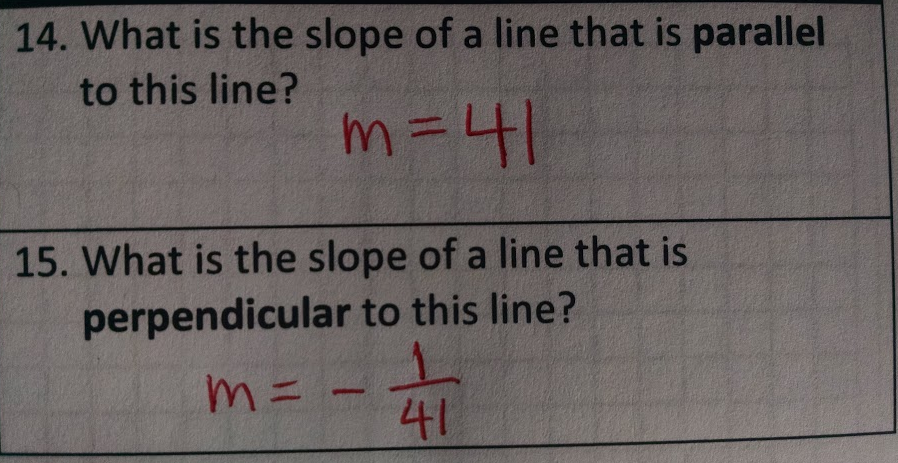 14. What is the slope of a line that is parallel
to this line?
m = 41
15. What is the slope of a line that is
perpendicular to this line?
m = - 1/41